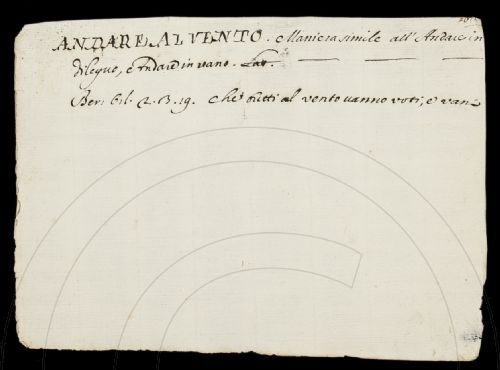 ANDARE AL VENTO. Maniera simile all' Andare in
dilegue, e Andare in vano. Lat.
Ber: Orl. 2. 13. 19. che tutti al vento vanno voti, e van